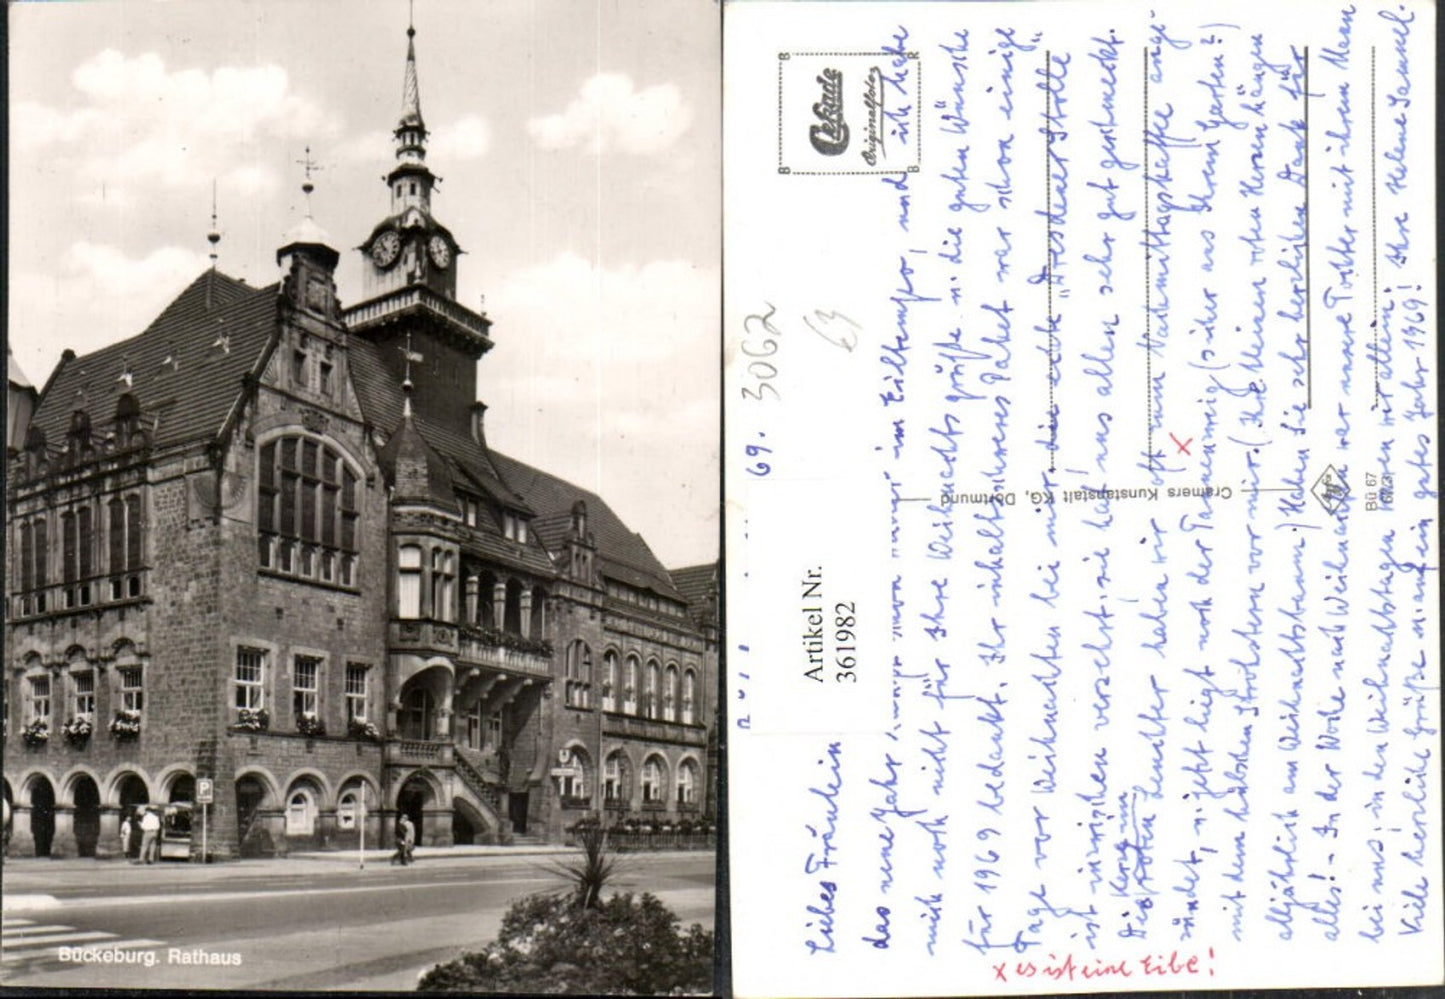 Bückeburg. Rathaus
P
Cekade
Originalfoto
B R
B B
3062
63
69.
Artikel Nr.
361982
Cramers Kunstanstalt KG, Dortmund
Bü 67
Liebes Fräulein
das neue Jahr schon im Eiltempo, und ich habe
mich noch nicht für Ihre Weihnachtsgrüße u. die guten Wünsche
für 1969 bedankt. Ihr inhaltsschweres Paket war schon einige
Tage vor Weihnachten bei mir, die echte "Dresdener Stolle"
ist inzwischen verzehrt, sie hat uns allen sehr gut geschmeckt.
Die Kerze im roten Leuchter haben wir oft zum Nachmittagskaffee ange-
zündet, u. jetzt liegt noch der Tannenzweig x (sicher aus Ihrem Garten?)
mit dem hübschen Strohstern vor mir. (Ihre kleinen roten Herzen hängen
alljährlich am Weihnachtsbaum.) Haben Sie sehr herzlichen Dank für
alles! - In der Woche nach Weihnachten war unsere Tochter mit ihrem Mann
bei uns, in den Weihnachtstagen waren wir allein.
Viele herzliche Grüße u. auf ein gutes Jahr 1969! Ihre Helene
x es ist eine Eibe!